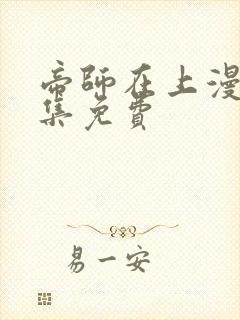 帝師在上漫
集免費
易一安